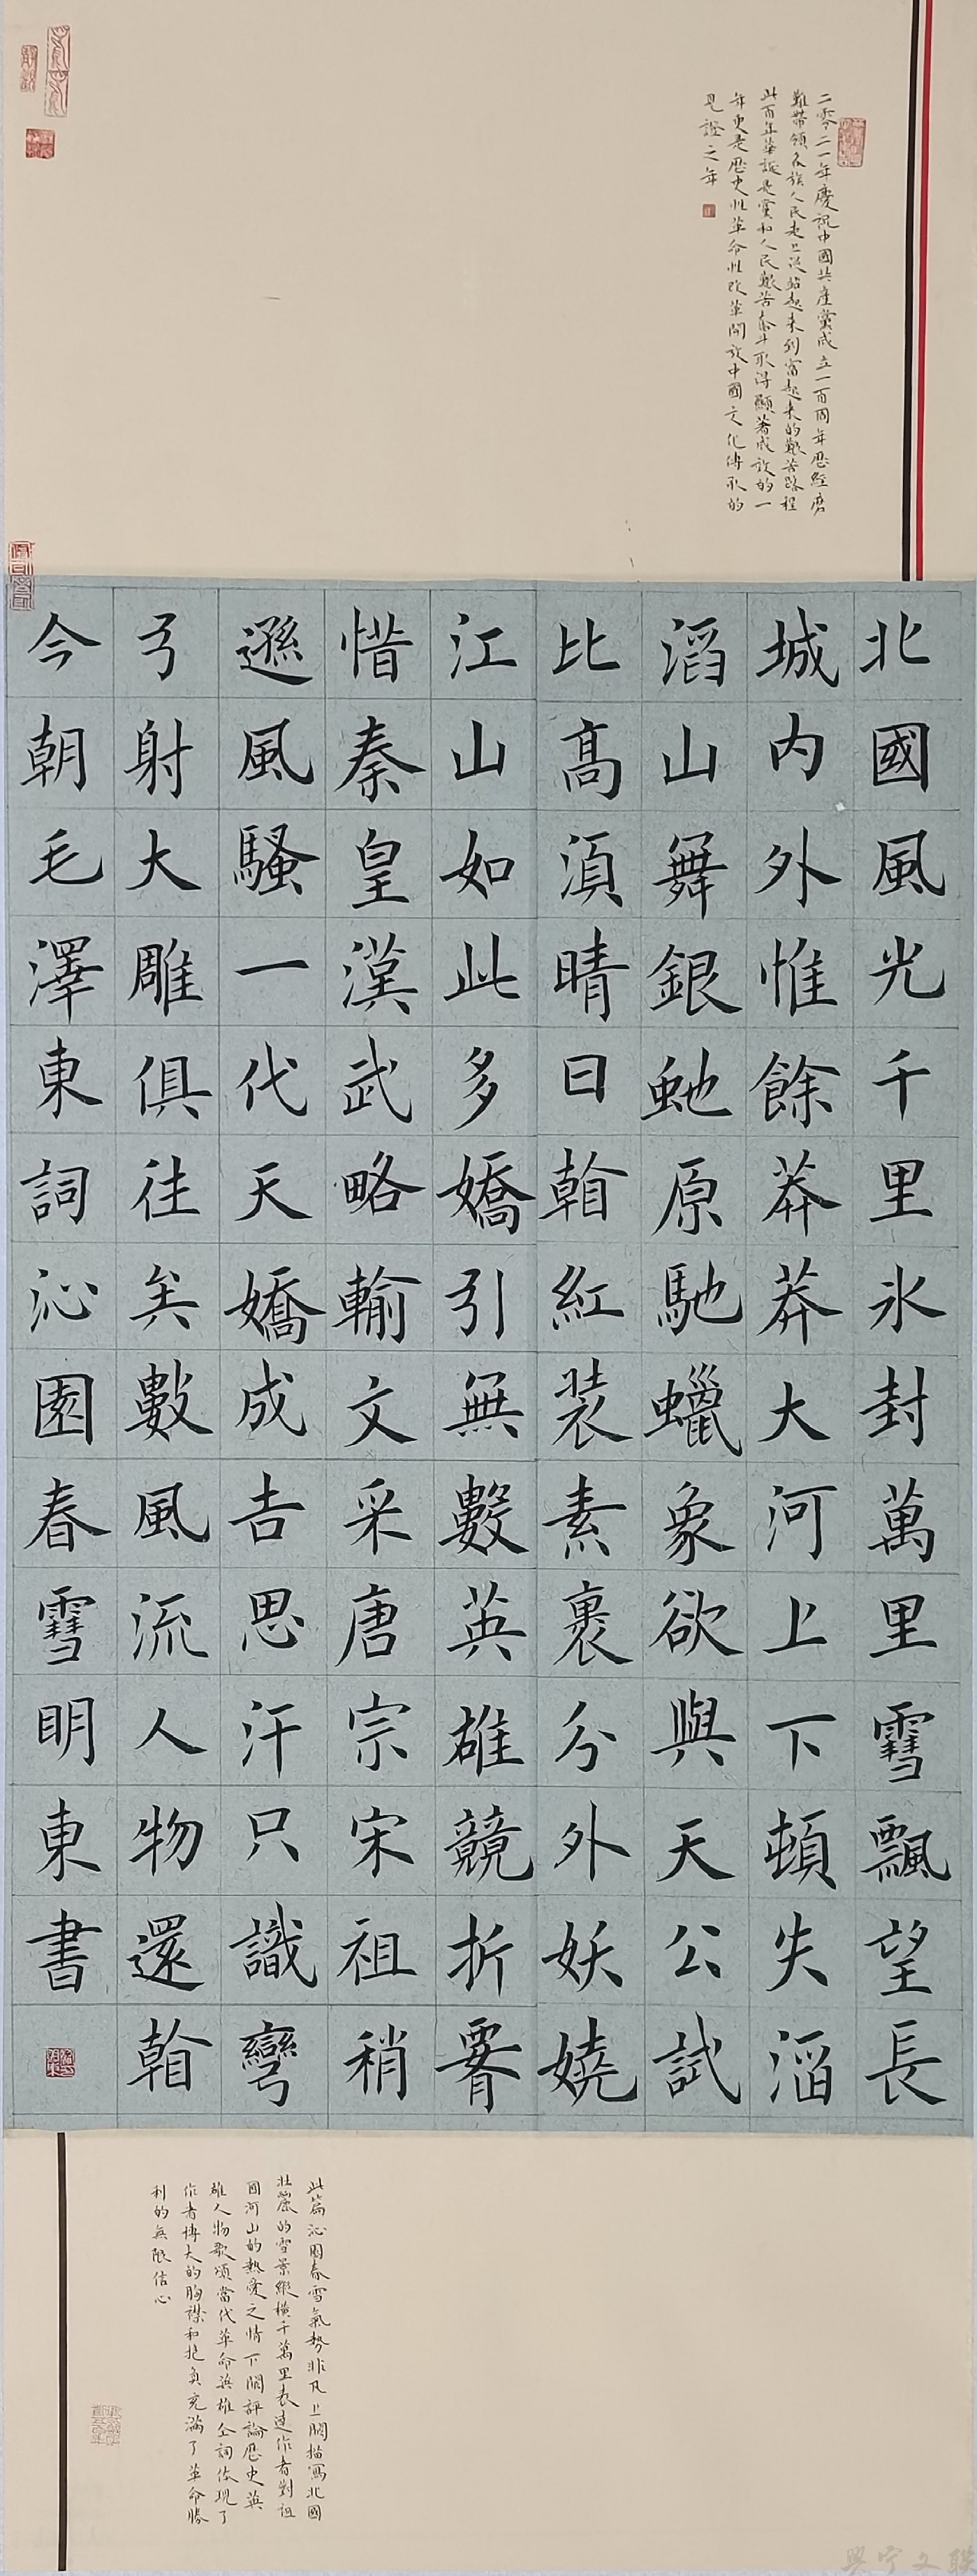 二零二一年慶祝中國共產黨成立一百周年歷經磨
難帶領各族人民走上從站起來到富起來的艱苦路程
此百年華誕是黨和人民艱苦奮斗取得顯著成效的一
年更是歷史性革命性改革開放中國文化傳承的
見證之年
北國風光千里氷封萬里雪飄望長
城内外惟餘莽莽大河上下頓失滔
滔山舞銀虵原馳蠟象欲與天公試
比高須晴日看紅装素裹分外妖嬈
江山如此多嬌引無數英雄競折腰
惜秦皇漢武略輸文采唐宗宋祖稍
遜風騷一代天嬌成吉思汗只識彎
弓射大雕俱往矣數風流人物還看
今朝毛澤東詞沁園春雪明東書
此篇沁園春雪氣勢非凡上闋描寫北國
壯麗的雪景縱橫千萬里表達作者對祖
國河山的熱愛之情下闋評論歷史英
雄人物歌頌當代革命英雄全詞体現了
作者博大的胸襟和抱負充滿了革命勝
利的無限信心